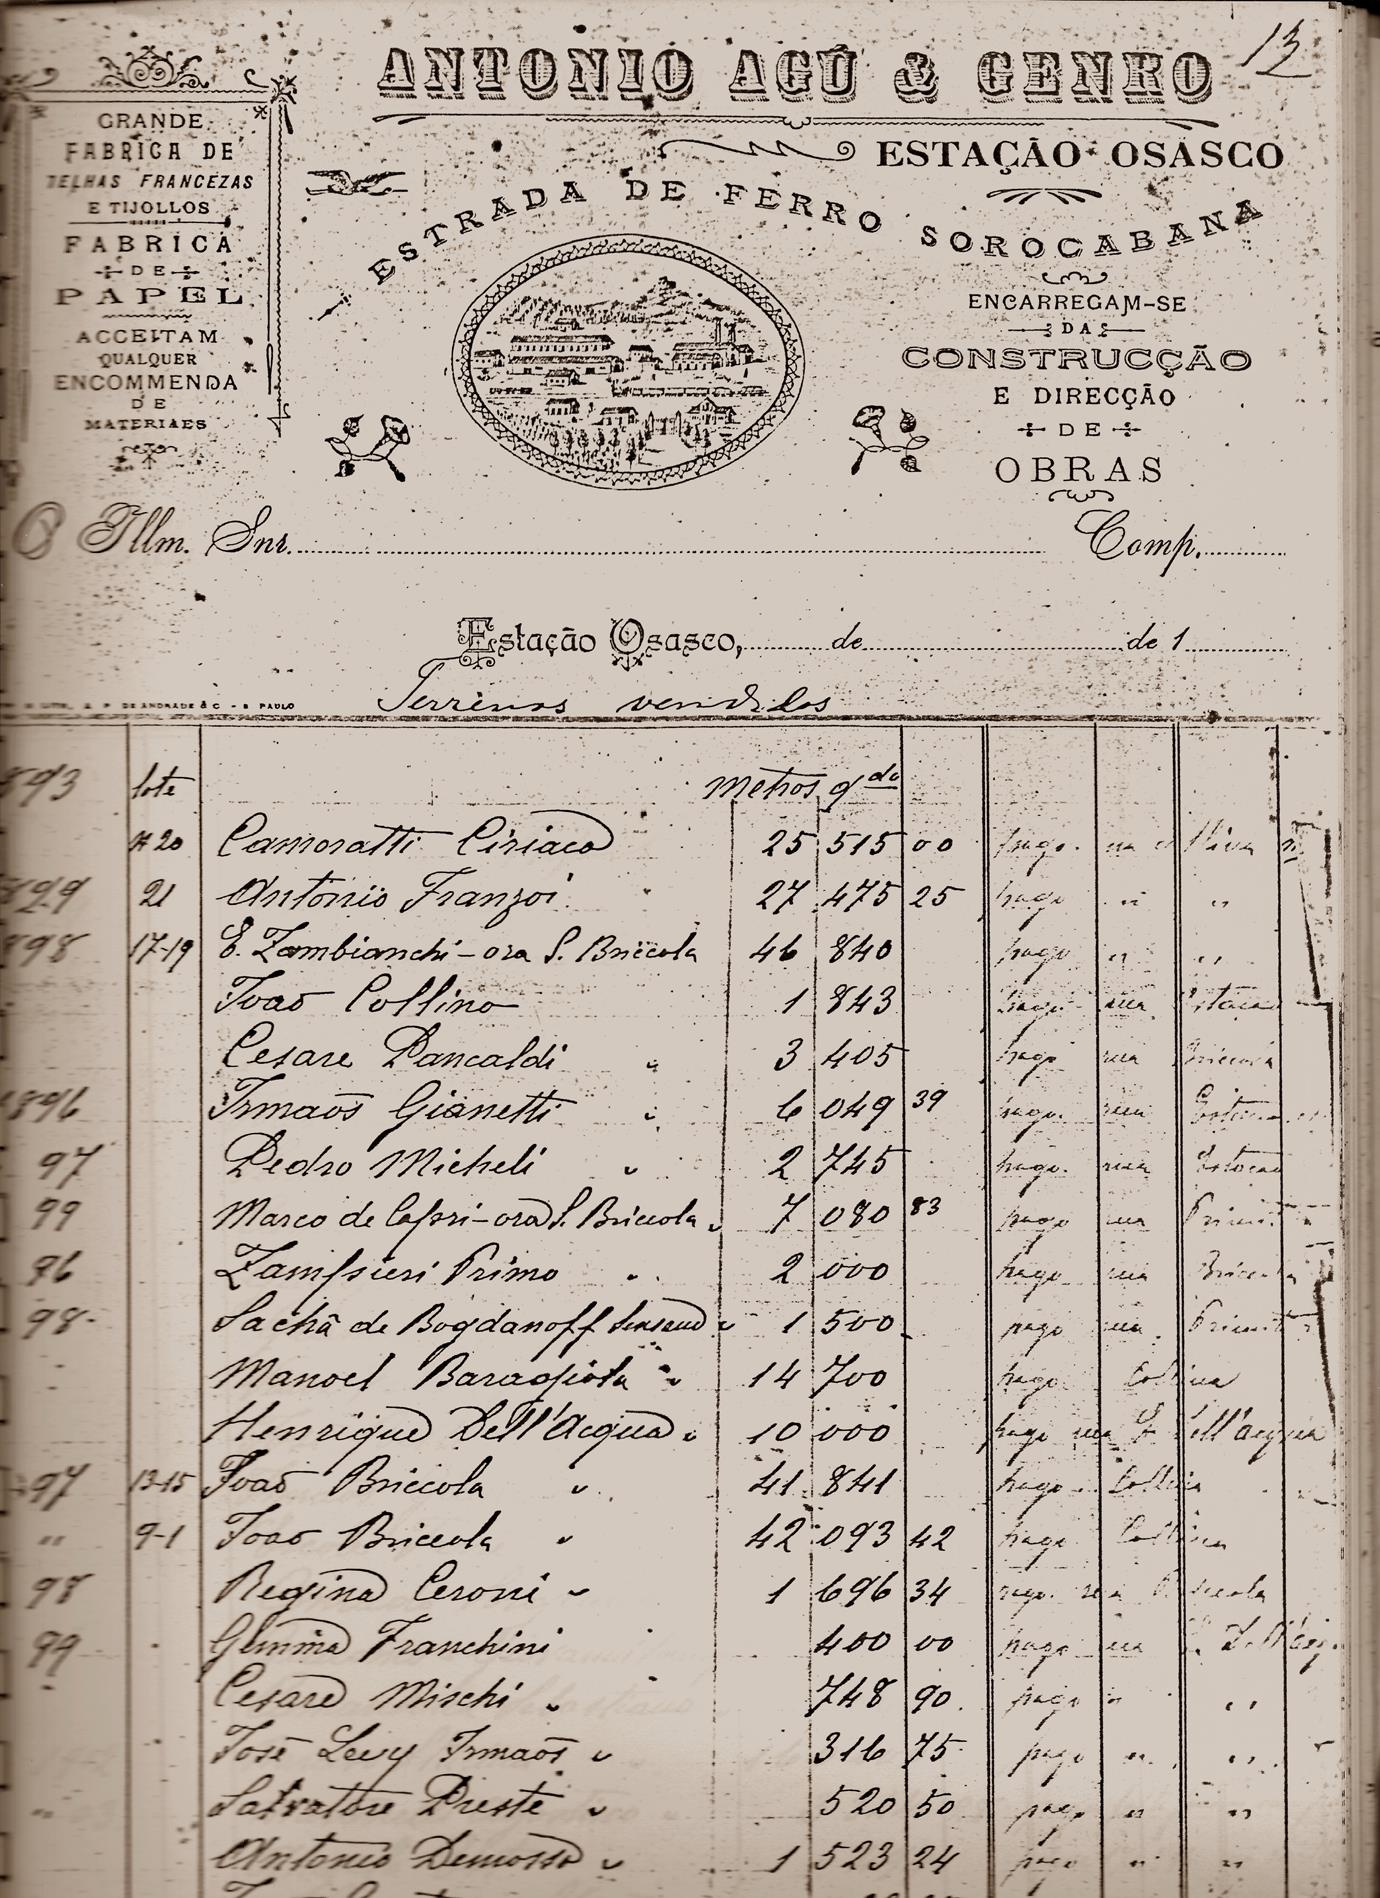 13
ANTONIO AGÚ & GENRO
ESTAÇÃO OSASCO
ESTRADA DE FERRO SOROCABANA
GRANDE
FABRICA DE
TELHAS FRANCEZAS
E TIJOLLOS
FABRICA
DE
PAPEL
ACCEITAM
QUALQUER
ENCOMMENDA
DE
MATERIAES
ENCARREGAM-SE
DA
CONSTRUCÇÃO
E DIRECÇÃO
DE
OBRAS
Illm. Snr. Comp.
Estação Osasco, de de 1
DE ANDRADE & C - S PAULO
Terrenos vendidos
893 lote metros qdo
20 Camoratti Ciriaco 25 515 00 pago
899 21 Antonio Franzoi 27 475 25 pago " "
898 17-19 E. Zambianchi - ora S. Briccola 46 840 pago " "
João Collino 1 843 pago rua Estação
Cesare Pancaldi " 3 405 pago rua Briccola
1896 Irmaõs Gianetti " 6 049 39 pago rua
97 Pedro Micheli " 2 745 pago rua Estação
99 Marco de Capri - ora S. Briccola " 7 080 83 pago rua
96 Primo " 2 000 pago rua Briccola
98 Sachã de Bogdanoff " 1 500 pago rua
Manoel " 14 700 pago Collina
Henrique Dell'Acqua " 10 000 pago rua Dell'Acqua
97 13-15 João Briccola " 41 841 pago Collina
" 9-1 João Briccola " 42 093 42 pago Collina
98 Regina Ceroni " 1 696 34 pago rua Briccola
99 Gemma Franchini 400 00 pago rua
Cesare Mischi " 748 90 pago " "
José Levy Irmaõs " 316 75 pago " "
" Salvatore Preste " 520 50 pago " "
Antonio Demosso " 1 523 24 pago " "